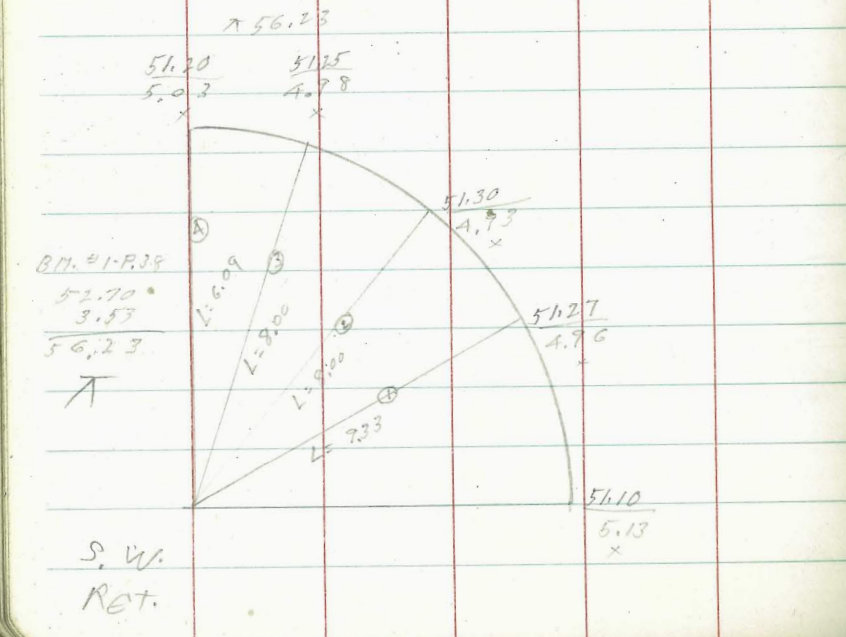 ⊼ 56.23
51.20
5.03
x
51.25
4.98
x
51.30
4.93
x
B.M. #1-P.38
52.70
3.53
56.23
⊼
4
L=6.09
3
L=8.00
2
L=8.00
1
L=9.33
51.27
4.96
x
51.10
5.13
x
S.W.
RET.